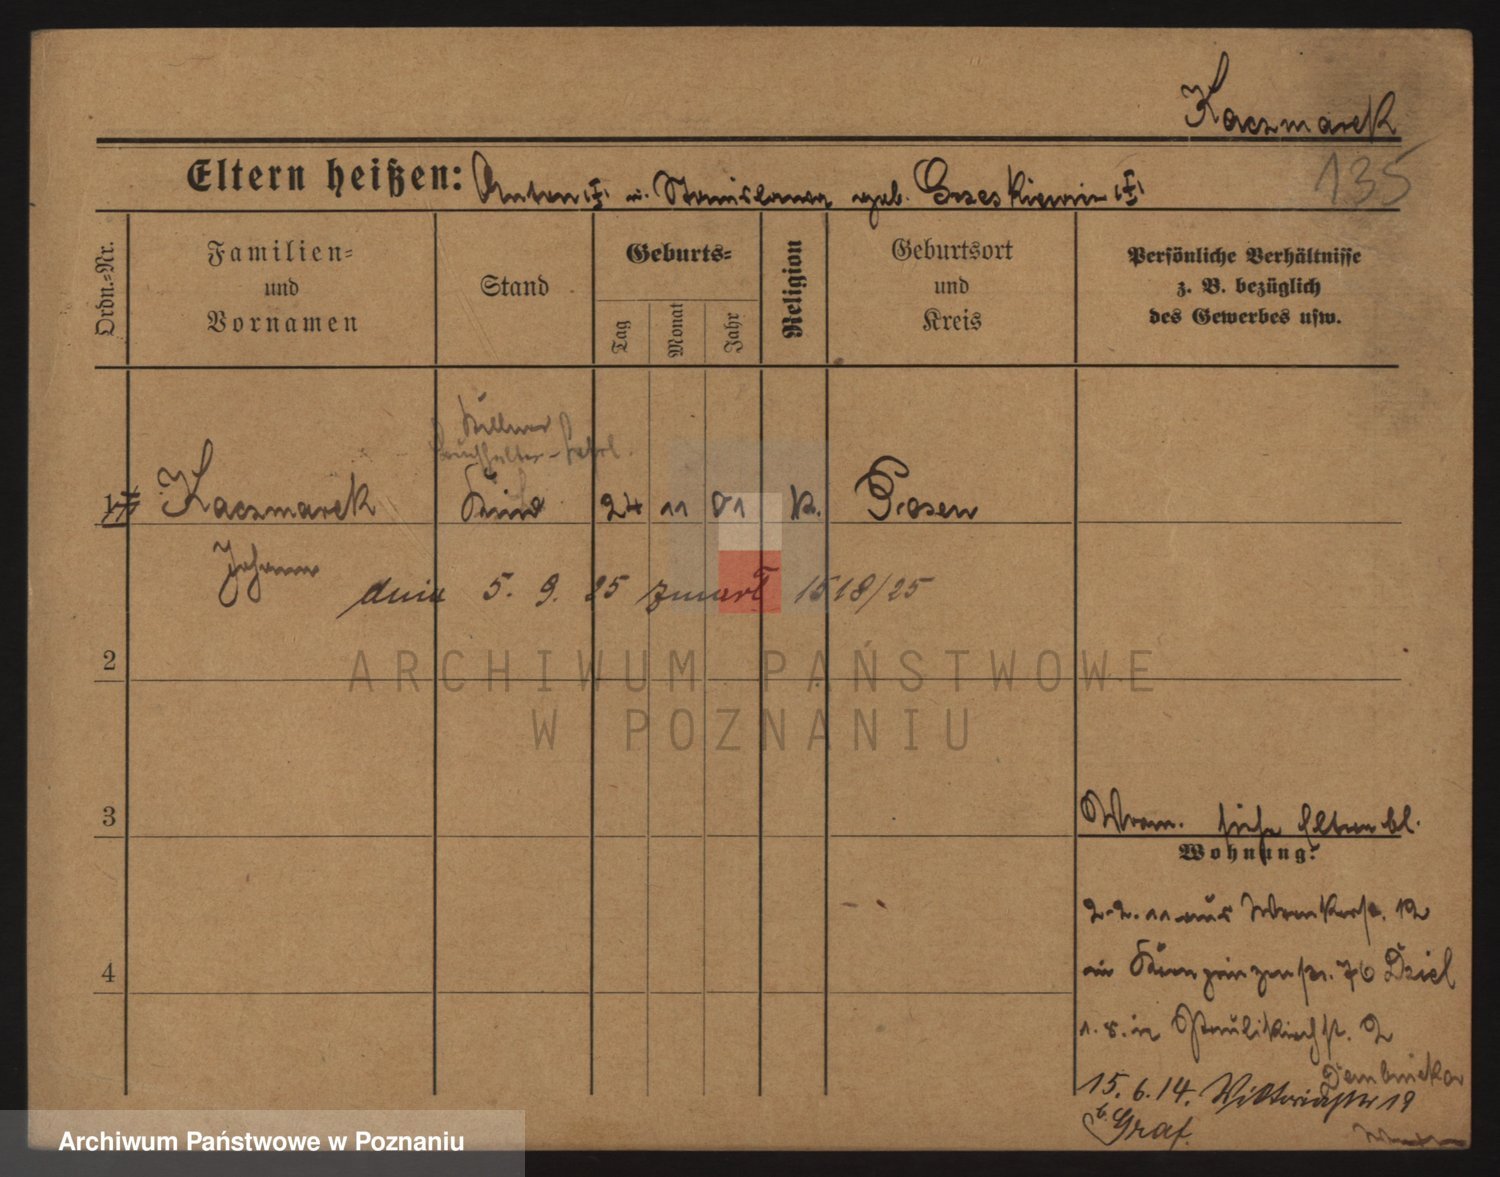 Kaczmarek
135
Eltern heißen: Anton (†) u. Stanislawa geb. Grzeskiewicz (†)
Ordn.-Nr.
Familien-
und
Vornamen
Stand
Geburts-
Tag
Monat
Jahr
Religion
Geburtsort
und
Kreis
Persönliche Verhältnisse
z. B. bezüglich
des Gewerbes usw.
Kellner
1 Kaczmarek Kind 24 11 01 K. Posen
Johann
dnia 5. 9. 25 zmarł 1518/25
2
ARCHIWUM PAŃSTWOWE
W POZNANIU
3
siehe Elternbl.
Wohnung:
2.2.11 aus Wronkerst. 12
in Kronprinzenstr. 76 Dziel
1.8. in Paulikirchst. 2
Dembnicka
15.6.14. Viktoriastr 19
b. Graf.
4
Archiwum Państwowe w Poznaniu